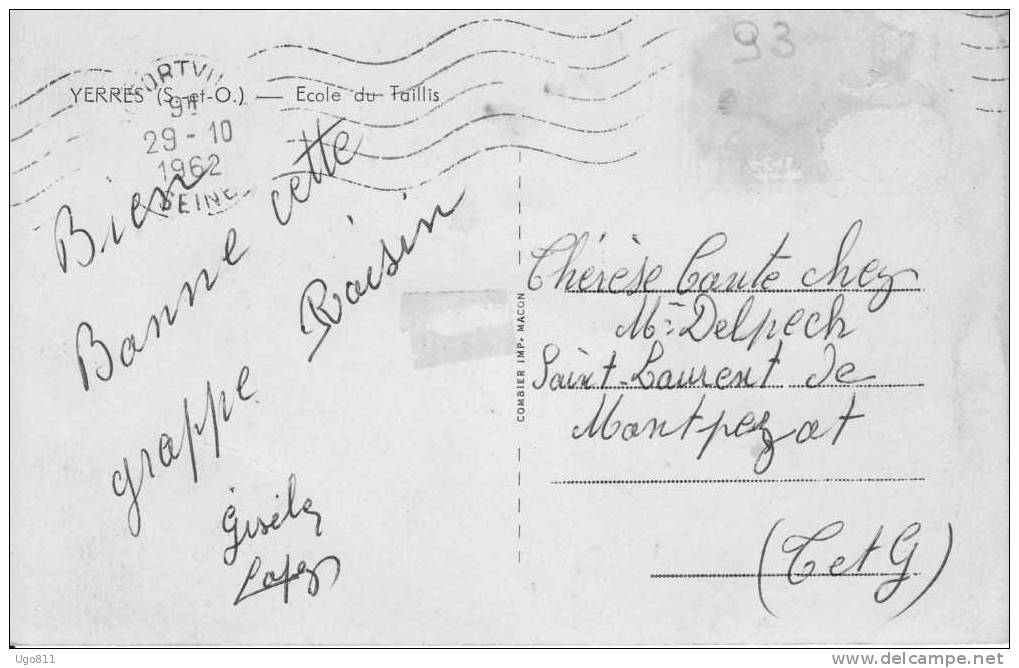 93
YERRES (S.-et-O.) — Ecole du Taillis
9H
29-10
1962
SEINE
Bien
Bonne cette
grappe Raisin
Gisèle
Lopez
COMBIER IMP. MACON
Thérèse Coute chez
Mme Delpech
Saint-Laurent de
Montpezat
(T et G)
Ugo811
www.delcampe.net